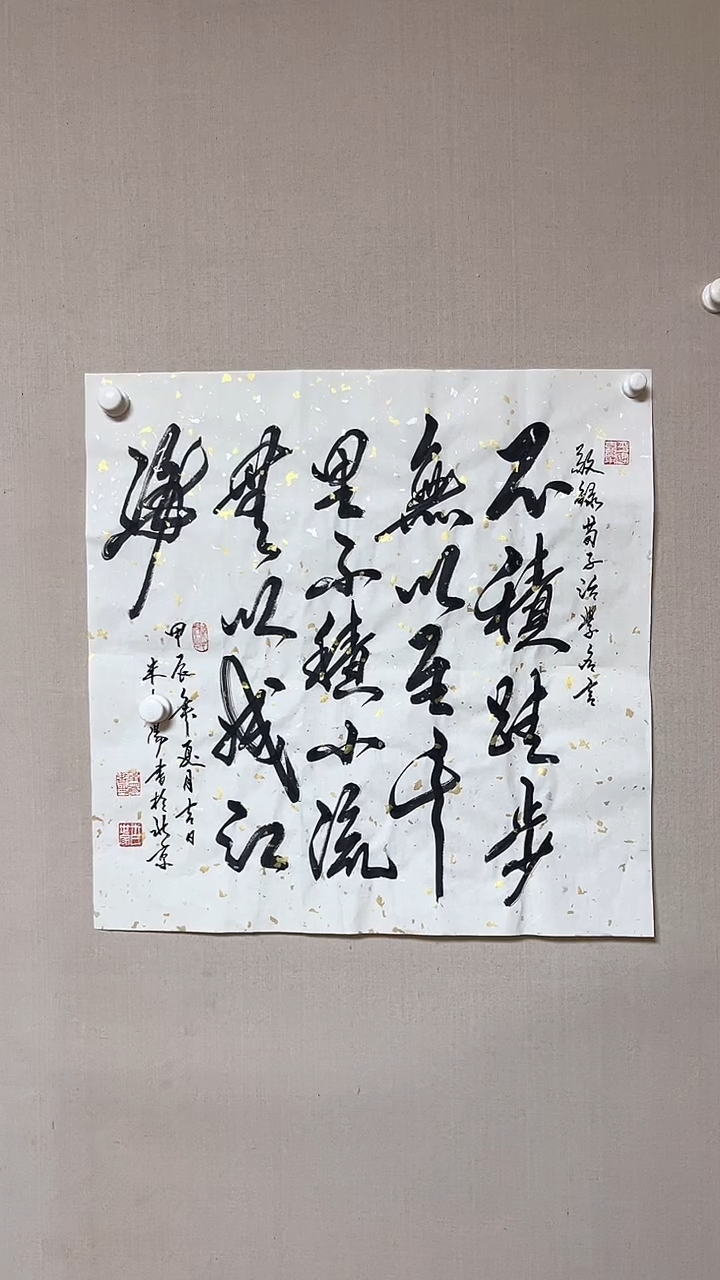 敬録荀子治學名言
不積跬步
無以至千
里不積小流
無以成江
海
甲辰年夏月吉日
書於北京